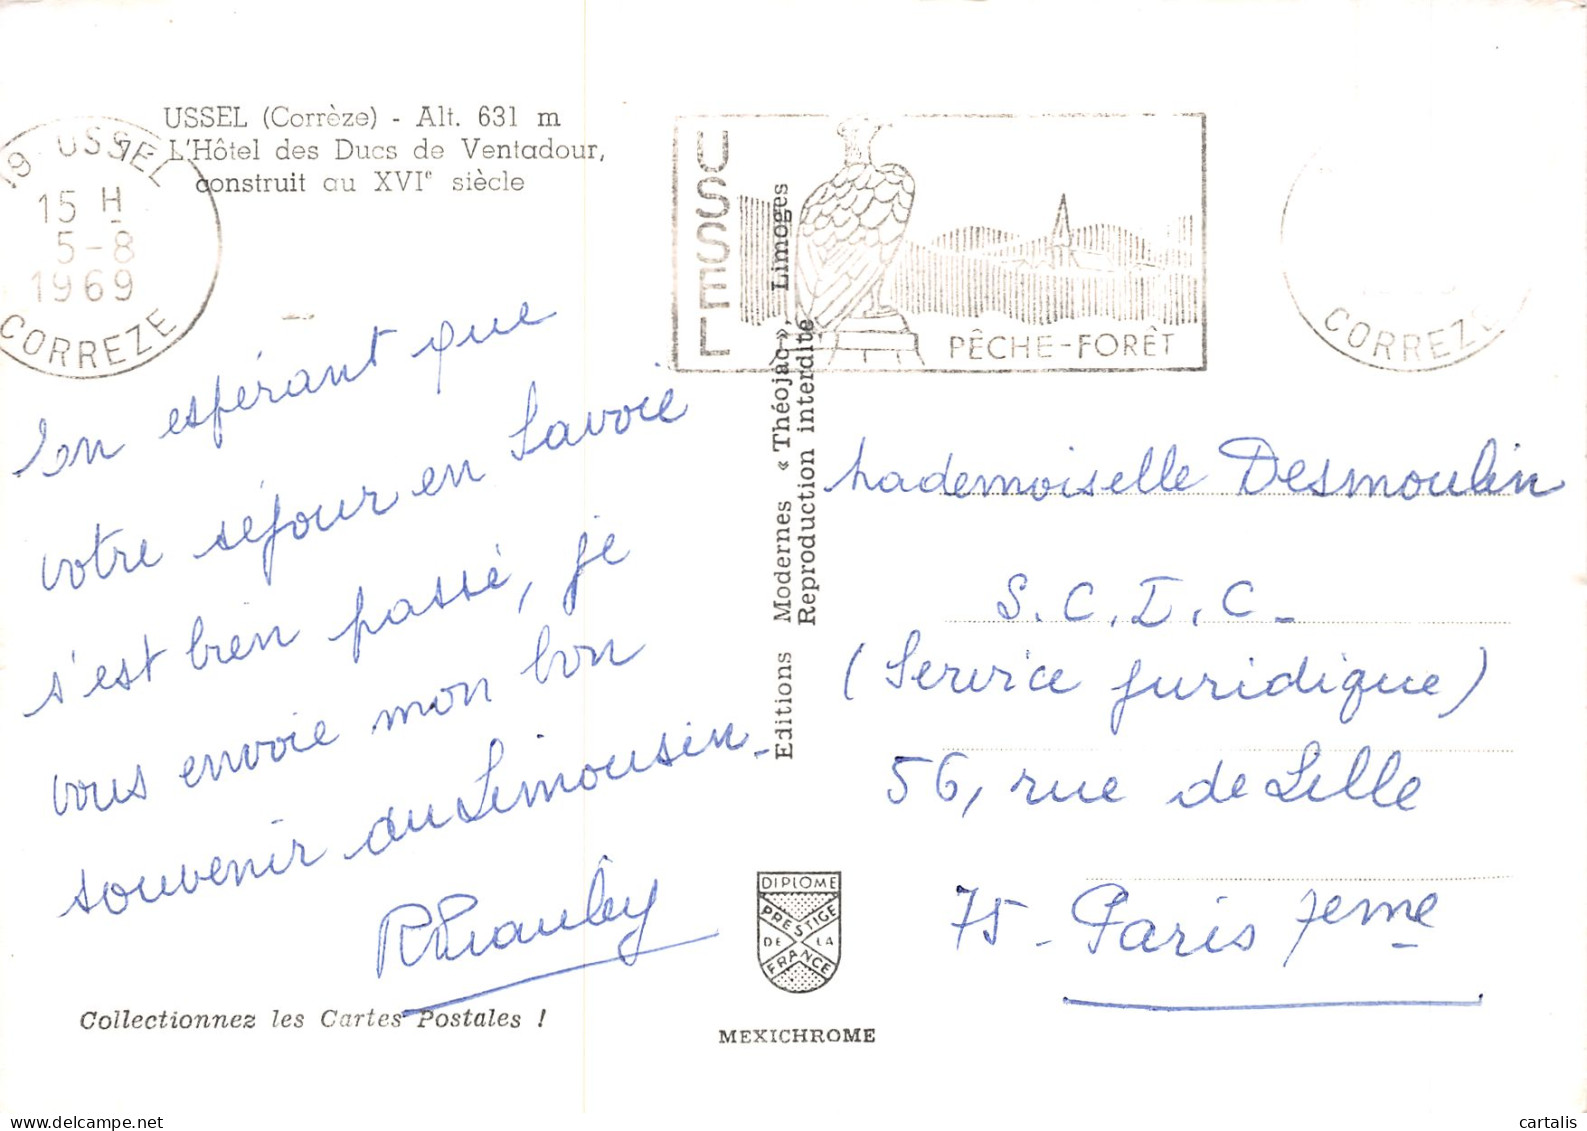 USSEL (Corrèze) - Alt. 631 m
7 - L'Hôtel des Ducs de Ventadour,
construit au XVIᵉ siècle
19 USSEL
15 H
5-8
1969
CORREZE
USSEL
PÊCHE-FORÊT
CORREZE
En espérant que
votre séjour en Savoie
s'est bien passé, je
vous envoie mon bon
souvenir du Limousin.
Editions Modernes « Théojac », Limoges
Reproduction interdite
Mademoiselle Desmoulin
S.C.I.C.
(Service juridique)
56, rue de Lille
75 - Paris 7eme
DIPLOME
PRESTIGE
DE LA
FRANCE
Collectionnez les Cartes Postales !
MEXICHROME
cartalis
delcampe.net